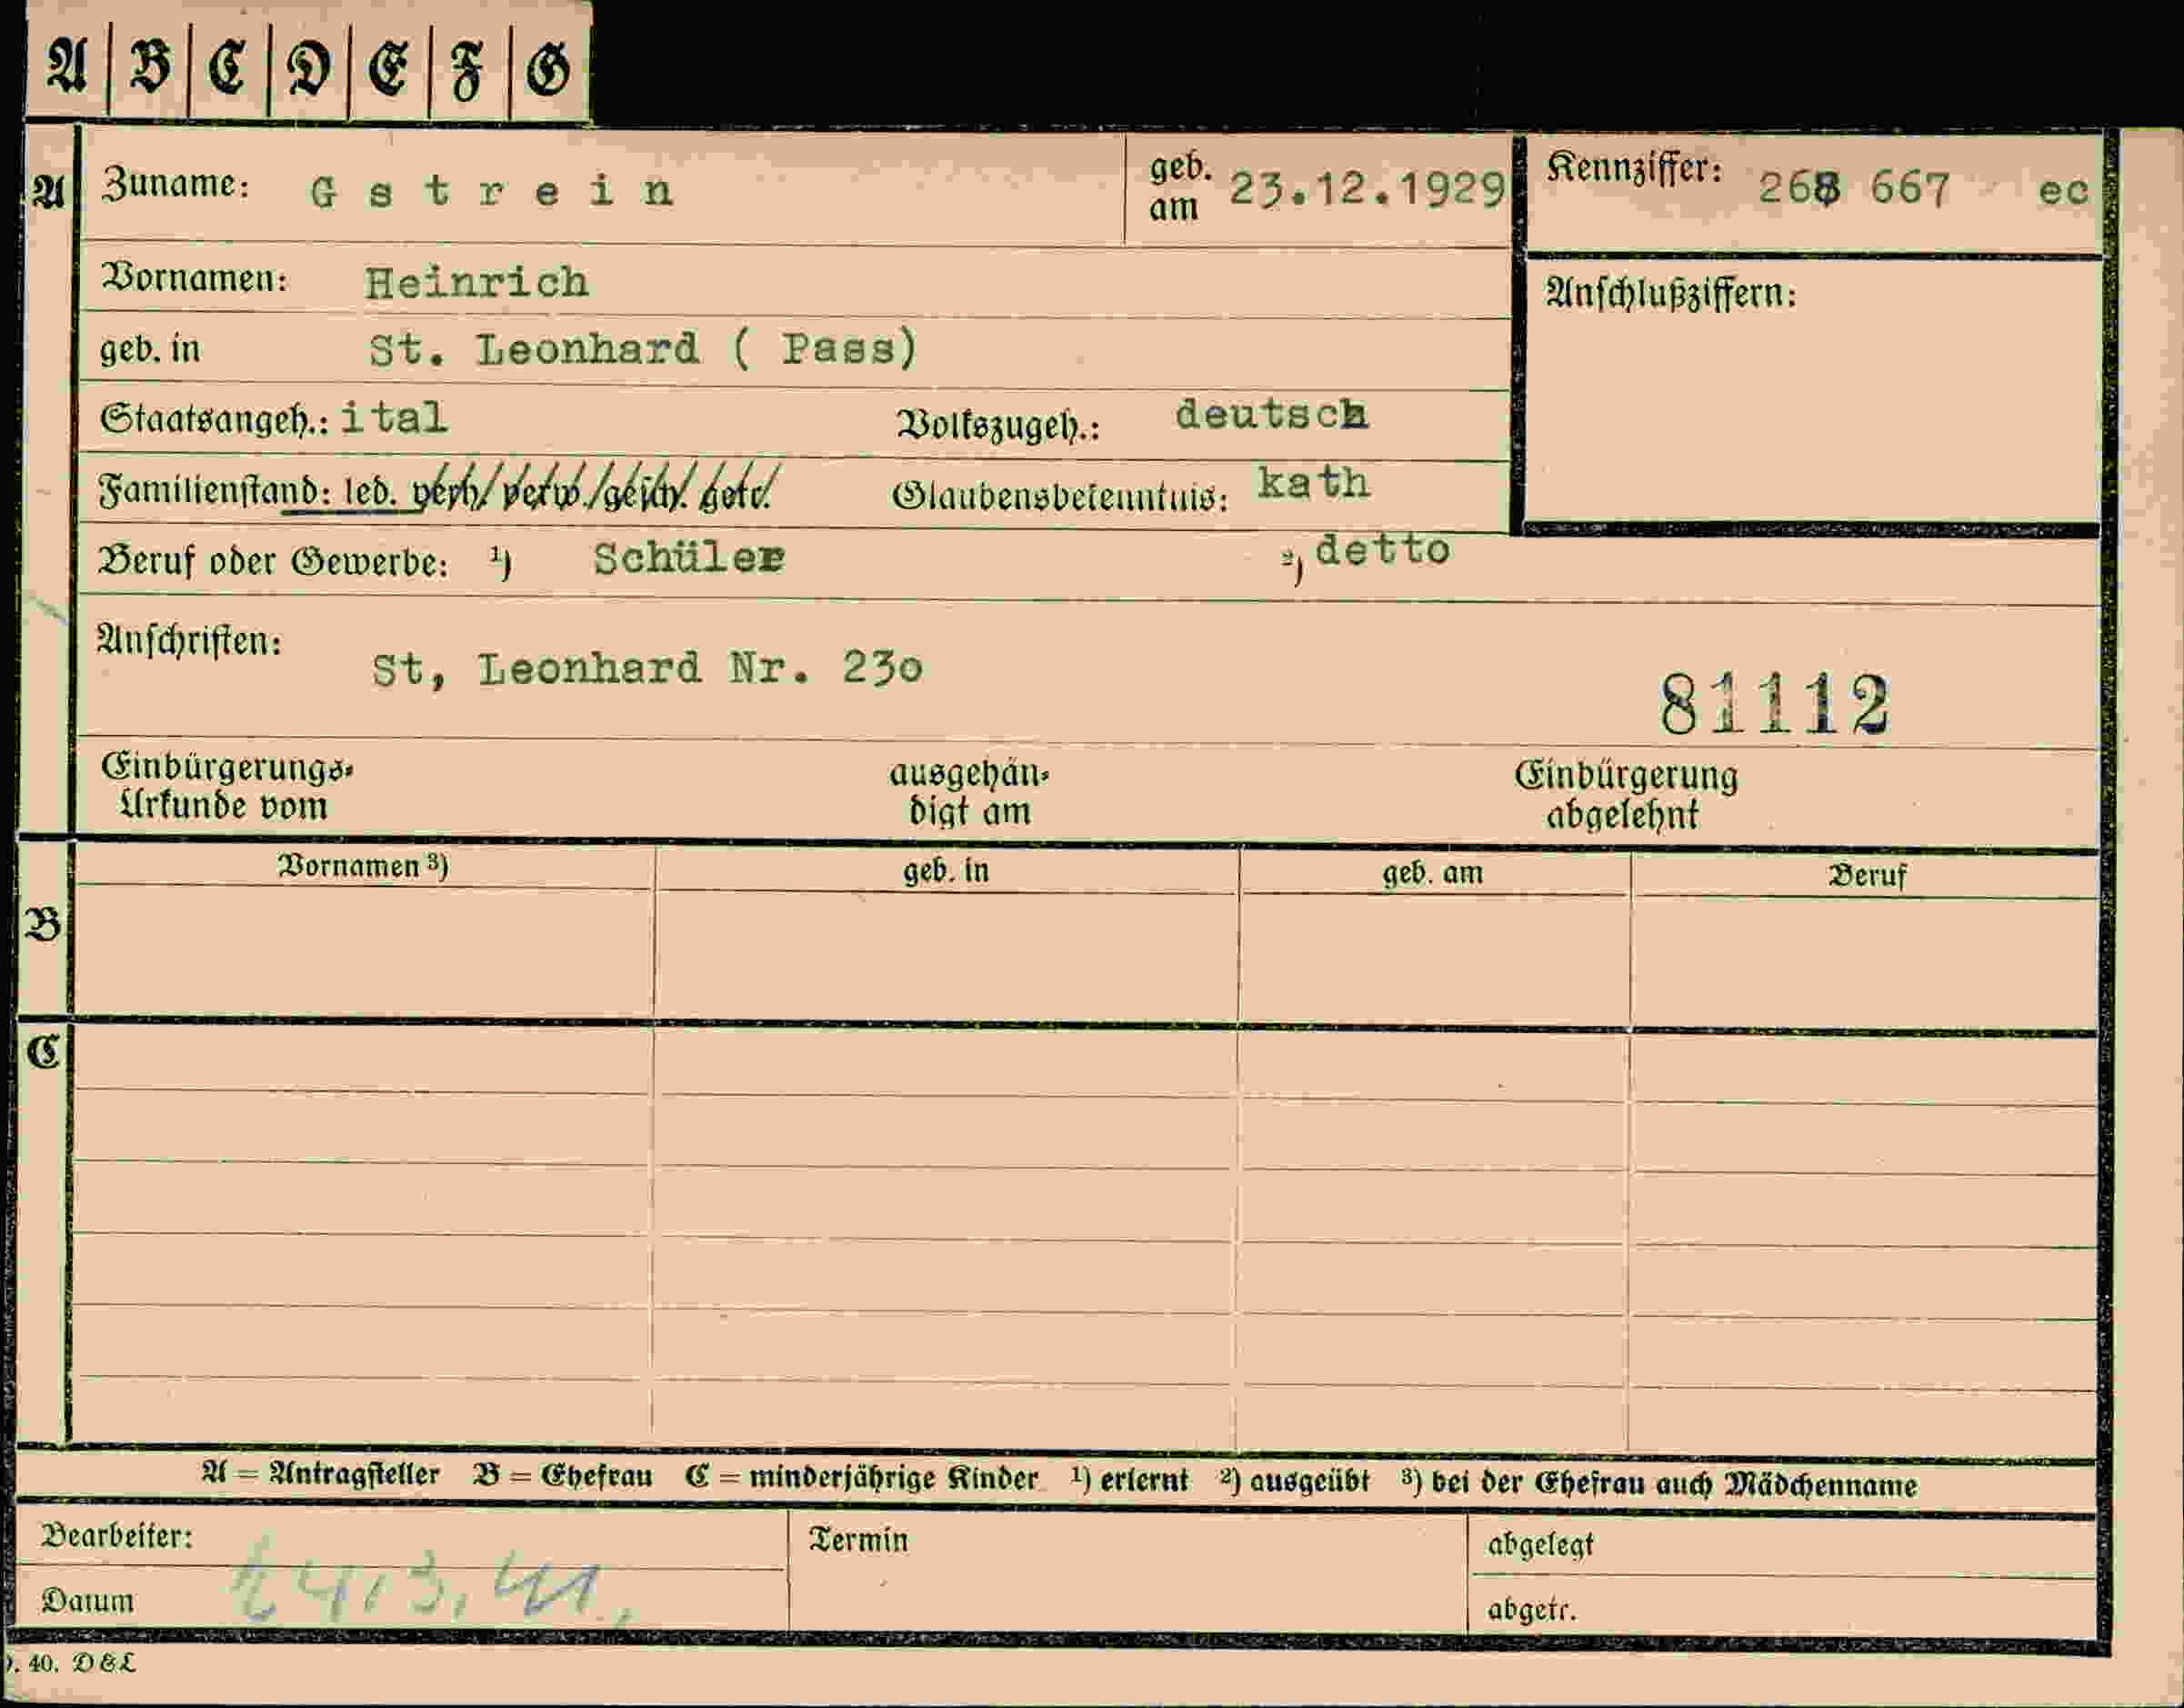 A B C D E F G
A Zuname: Gstrein geb. am 23.12.1929 Kennziffer: 268 667 ec
Vornamen: Heinrich Anschlußziffern:
geb. in St. Leonhard ( Pass)
Staatsangeh.: ital Volkszugeh.: deutsch
Familienstand: led. verh. verw. gesch. getr. Glaubensbekenntnis: kath
Beruf oder Gewerbe: ¹) Schüler ²) detto
Anschriften:
St, Leonhard Nr. 23o
81112
Einbürgerungs-
Urkunde vom
ausgehän-
digt am
Einbürgerung
abgelehnt
B Vornamen ³) geb. in geb. am Beruf
C
A = Antragsteller B = Ehefrau C = minderjährige Kinder ¹) erlernt ²) ausgeübt ³) bei der Ehefrau auch Mädchenname
Bearbeiter: Termin abgelegt
Datum abgetr.
40. D & L